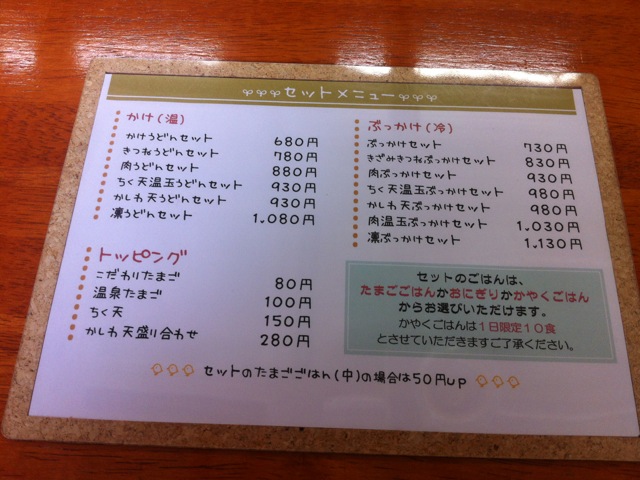 セットメニュー
かけ(温)
かけうどんセット 680円
きつねうどんセット 780円
肉うどんセット 880円
ちく天温玉うどんセット 930円
かしわ天うどんセット 930円
凛うどんセット 1,080円
ぶっかけ(冷)
ぶっかけセット 730円
きざみきつねぶっかけセット 830円
肉ぶっかけセット 930円
ちく天温玉ぶっかけセット 980円
かしわ天ぶっかけセット 980円
肉温玉ぶっかけセット 1,030円
凛ぶっかけセット 1,130円
トッピング
こだわりたまご 80円
温泉たまご 100円
ちく天 150円
かしわ天盛り合わせ 280円
セットのごはんは、
たまごごはんかおにぎりかかやくごはん
からお選びいただけます。
かやくごはんは1日限定10食
とさせていただきますご了承ください。
セットのたまごごはん(中)の場合は50円up